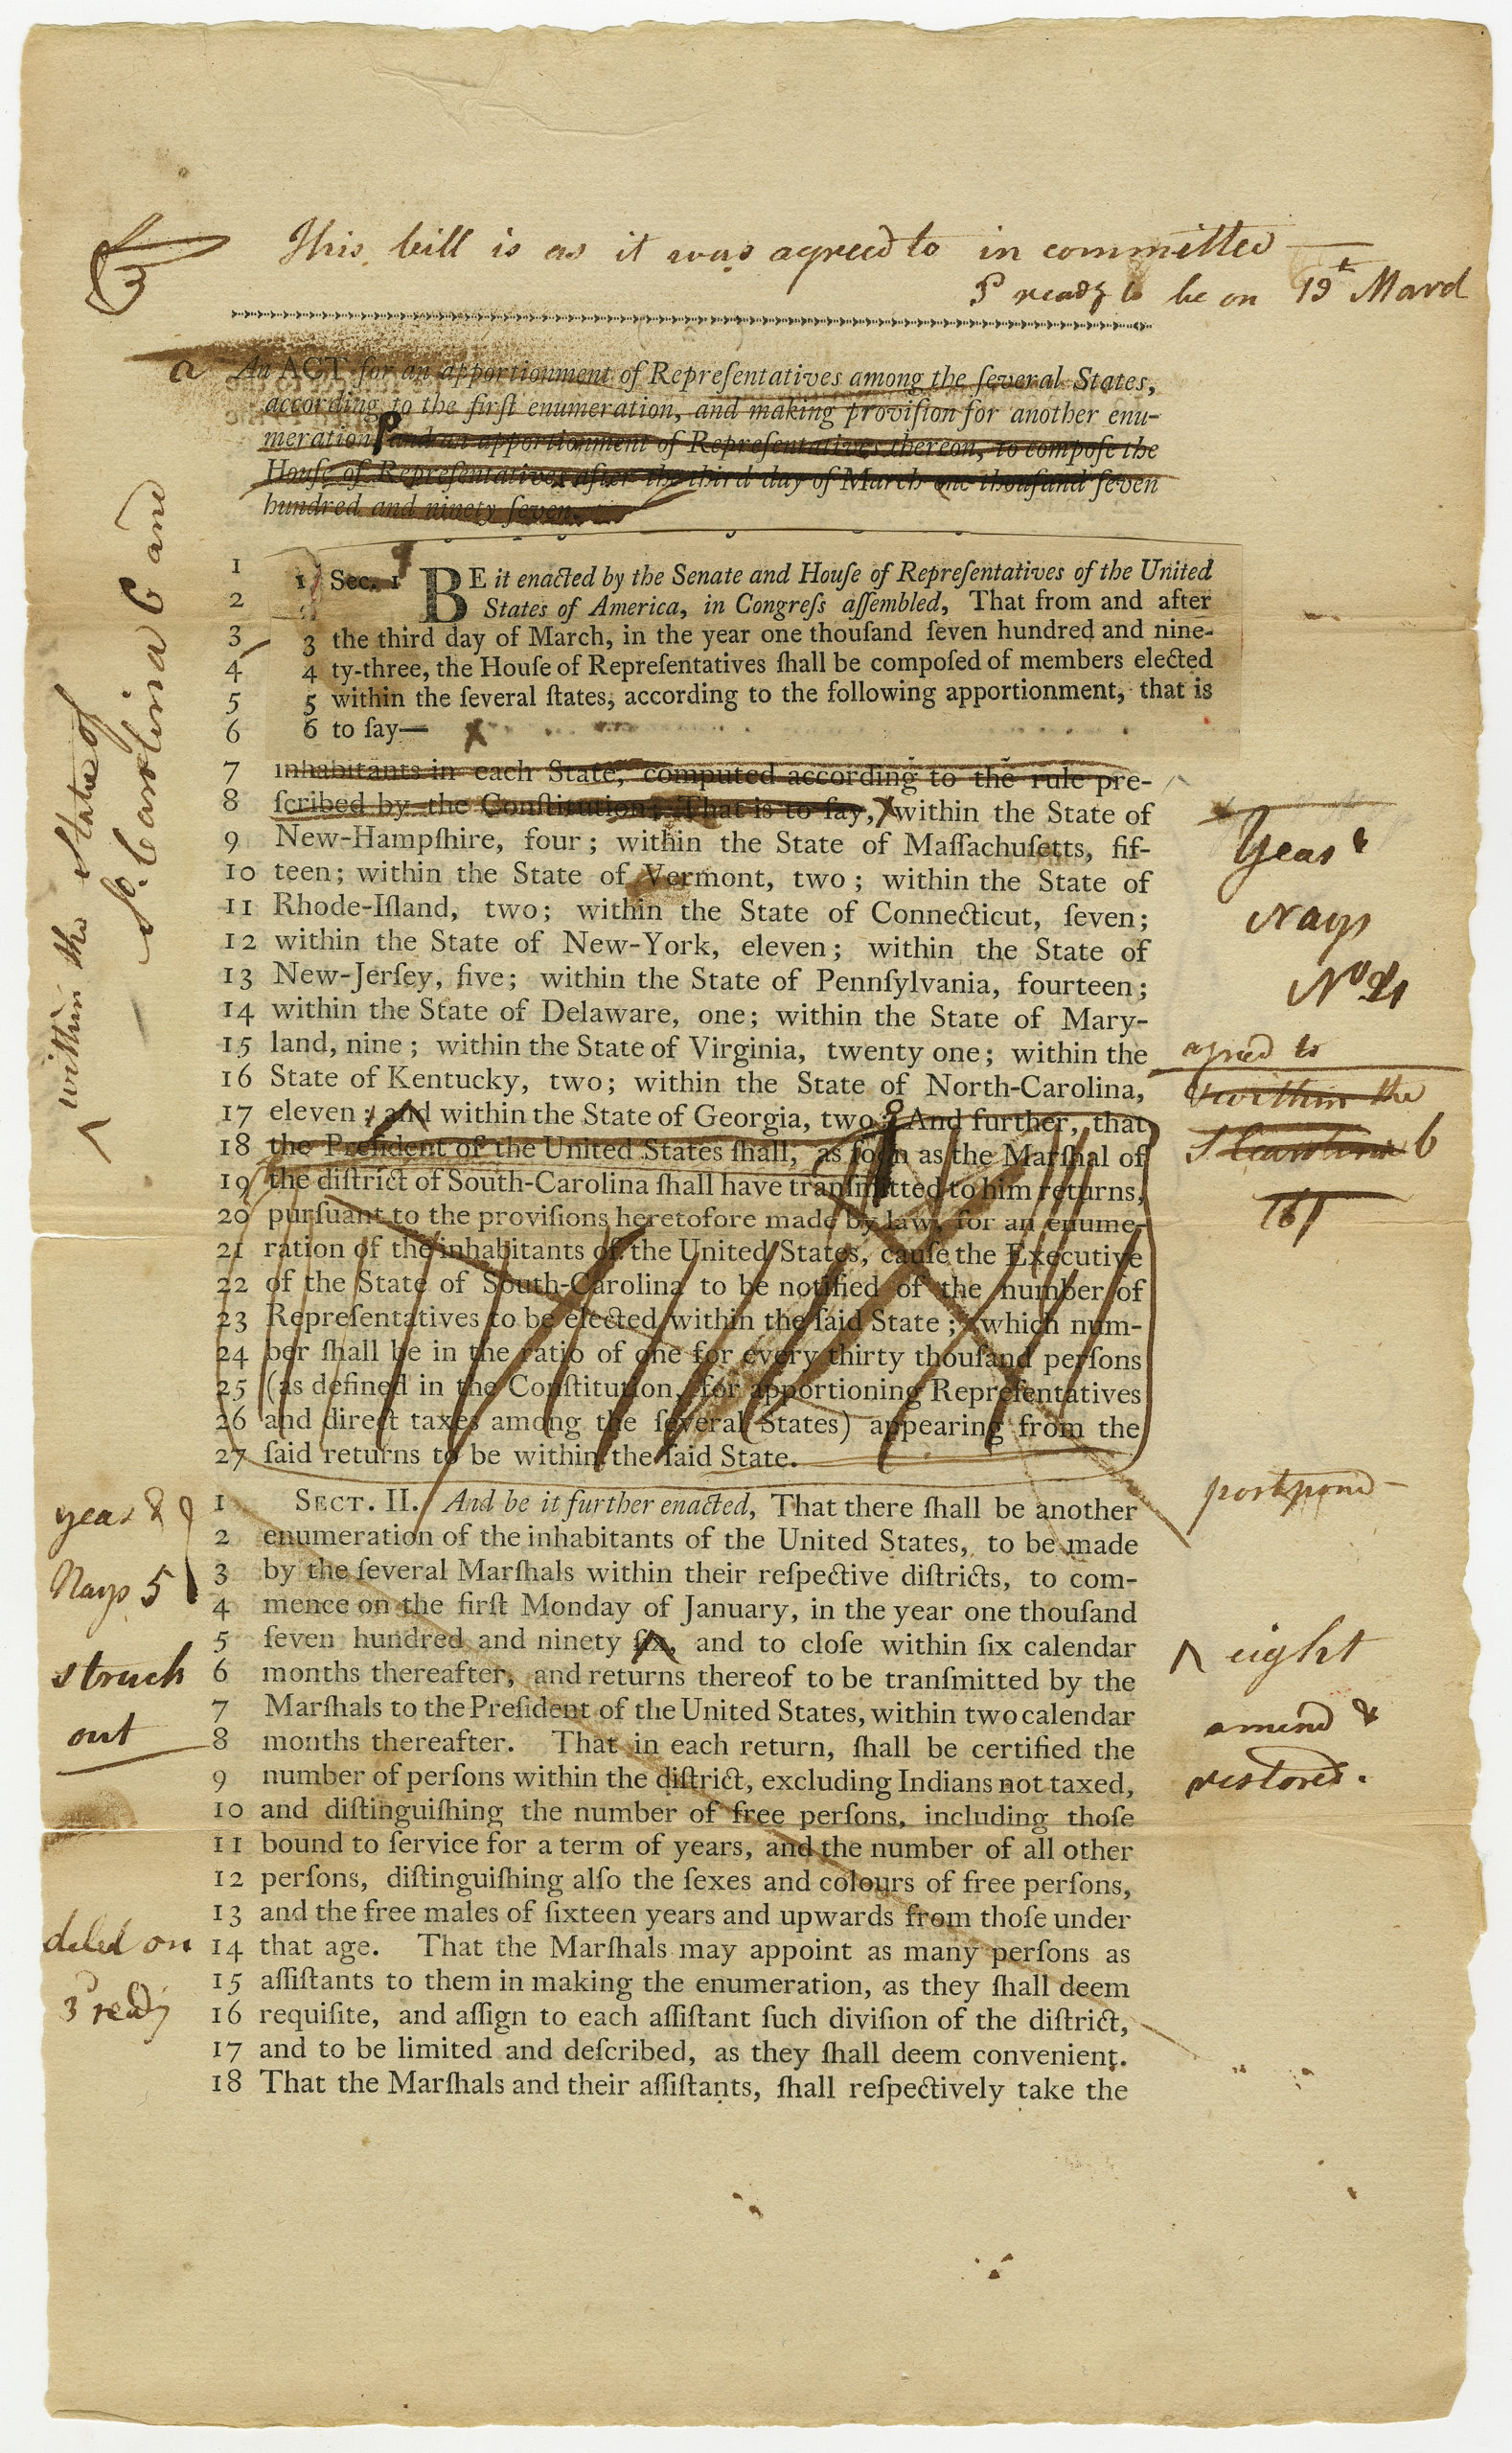 This bill is as it was agreed to in committee
3 ready to be on 19t March
a An ACT for an apportionment of Repreſentatives among the ſeveral States,
according to the firſt enumeration, and making proviſion for another enu-
meration, and an apportionment of Repreſentatives thereon, to compoſe the
Houſe of Repreſentatives after the third day of March one thouſand ſeven
hundred and ninety ſeven.
1 1 Sec. 1 BE it enacted by the Senate and Houſe of Repreſentatives of the United
2 States of America, in Congreſs aſſembled, That from and after
3 3 the third day of March, in the year one thouſand ſeven hundred and nine-
4 4 ty-three, the Houſe of Repreſentatives ſhall be compoſed of members elected
5 5 within the ſeveral ſtates, according to the following apportionment, that is
6 6 to ſay—
7 inhabitants in each State, computed according to the rule pre-
8 ſcribed by the Conſtitution; That is to ſay, within the State of
9 New-Hampſhire, four; within the State of Maſſachuſetts, fif-
10 teen; within the State of Vermont, two; within the State of
11 Rhode-Iſland, two; within the State of Connecticut, ſeven;
12 within the State of New-York, eleven; within the State of
13 New-Jerſey, five; within the State of Pennſylvania, fourteen;
14 within the State of Delaware, one; within the State of Mary-
15 land, nine; within the State of Virginia, twenty one; within the
16 State of Kentucky, two; within the State of North-Carolina,
17 eleven; and within the State of Georgia, two: And further, that
18 the Preſident of the United States ſhall, as ſoon as the Marſhal of
19 the diſtrict of South-Carolina ſhall have tranſmitted to him returns,
20 purſuant to the proviſions heretofore made by law, for an enume-
21 ration of the inhabitants of the United States, cauſe the Executive
22 of the State of South-Carolina to be notified of the number of
23 Repreſentatives to be elected within the ſaid State; which num-
24 ber ſhall be in the ratio of one for every thirty thouſand perſons
25 (as defined in the Conſtitution, for apportioning Repreſentatives
26 and direct taxes among the ſeveral States) appearing from the
27 ſaid returns to be within the ſaid State.
within the State of
So. Carolina 6 and
Yeas &
Nays
No 4
agreed to
within the
S Carolina 6
1 SECT. II. And be it further enacted, That there ſhall be another
2 enumeration of the inhabitants of the United States, to be made
3 by the ſeveral Marſhals within their reſpective diſtricts, to com-
4 mence on the firſt Monday of January, in the year one thouſand
5 ſeven hundred and ninety ſix, and to cloſe within ſix calendar
6 months thereafter, and returns thereof to be tranſmitted by the
7 Marſhals to the Preſident of the United States, within two calendar
8 months thereafter. That in each return, ſhall be certified the
9 number of perſons within the diſtrict, excluding Indians not taxed,
10 and diſtinguiſhing the number of free perſons, including thoſe
11 bound to ſervice for a term of years, and the number of all other
12 perſons, diſtinguiſhing alſo the ſexes and colours of free perſons,
13 and the free males of ſixteen years and upwards from thoſe under
14 that age. That the Marſhals may appoint as many perſons as
15 aſſiſtants to them in making the enumeration, as they ſhall deem
16 requiſite, and aſſign to each aſſiſtant ſuch diviſion of the diſtrict,
17 and to be limited and deſcribed, as they ſhall deem convenient.
18 That the Marſhals and their aſſiſtants, ſhall reſpectively take the
yeas &
Nays 5
struck
out
on
3 ready
postpond
eight
amend &
restored.